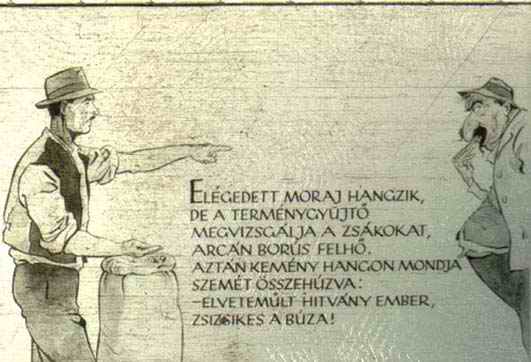 ELÉGEDETT MORAJ HANGZIK,
DE A TERMÉNYGYÜJTŐ
MEGVIZSGÁLJA A ZSÁKOKAT,
ARCÁN BORÚS FELHŐ.
AZTÁN KEMÉNY HANGON MONDJA
SZEMÉT ÖSSZEHÚZVA:
-ELVETEMÜLT HITVÁNY EMBER,
ZSIZSIKES A BÚZA!